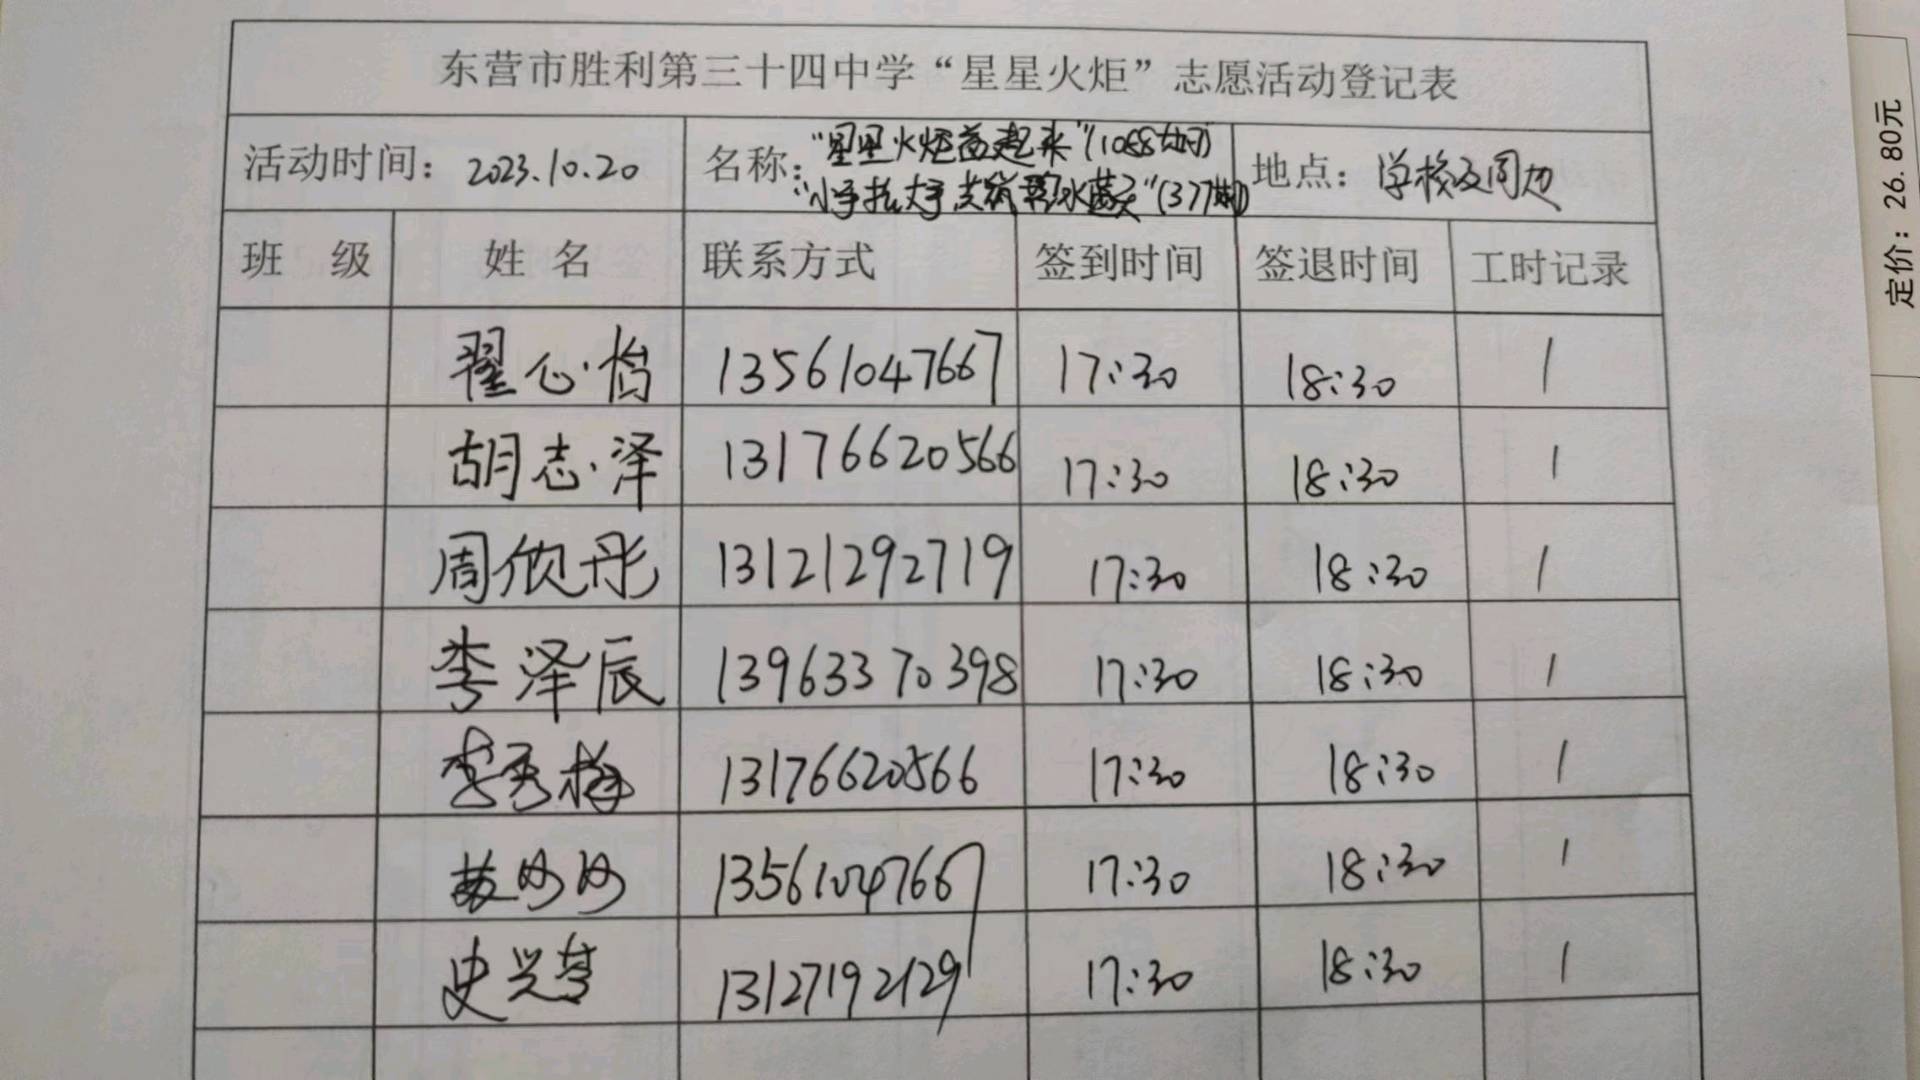 东营市胜利第三十四中学“星星火炬”志愿活动登记表
活动时间：2023.10.20 名称：“星星火炬益起来”(1068期) “小手拉大手 共筑碧水蓝天”(377期) 地点：学校及周边
班 级 姓 名 联系方式 签到时间 签退时间 工时记录
翟心怡 13561047667 17:30 18:30 1
胡志泽 13176620566 17:30 18:30 1
周欣彤 13121292719 17:30 18:30 1
李泽辰 13963370398 17:30 18:30 1
李秀梅 13176620566 17:30 18:30 1
苏妙妙 13561047667 17:30 18:30 1
史兴梦 13127192129 17:30 18:30 1
定价：26.80元